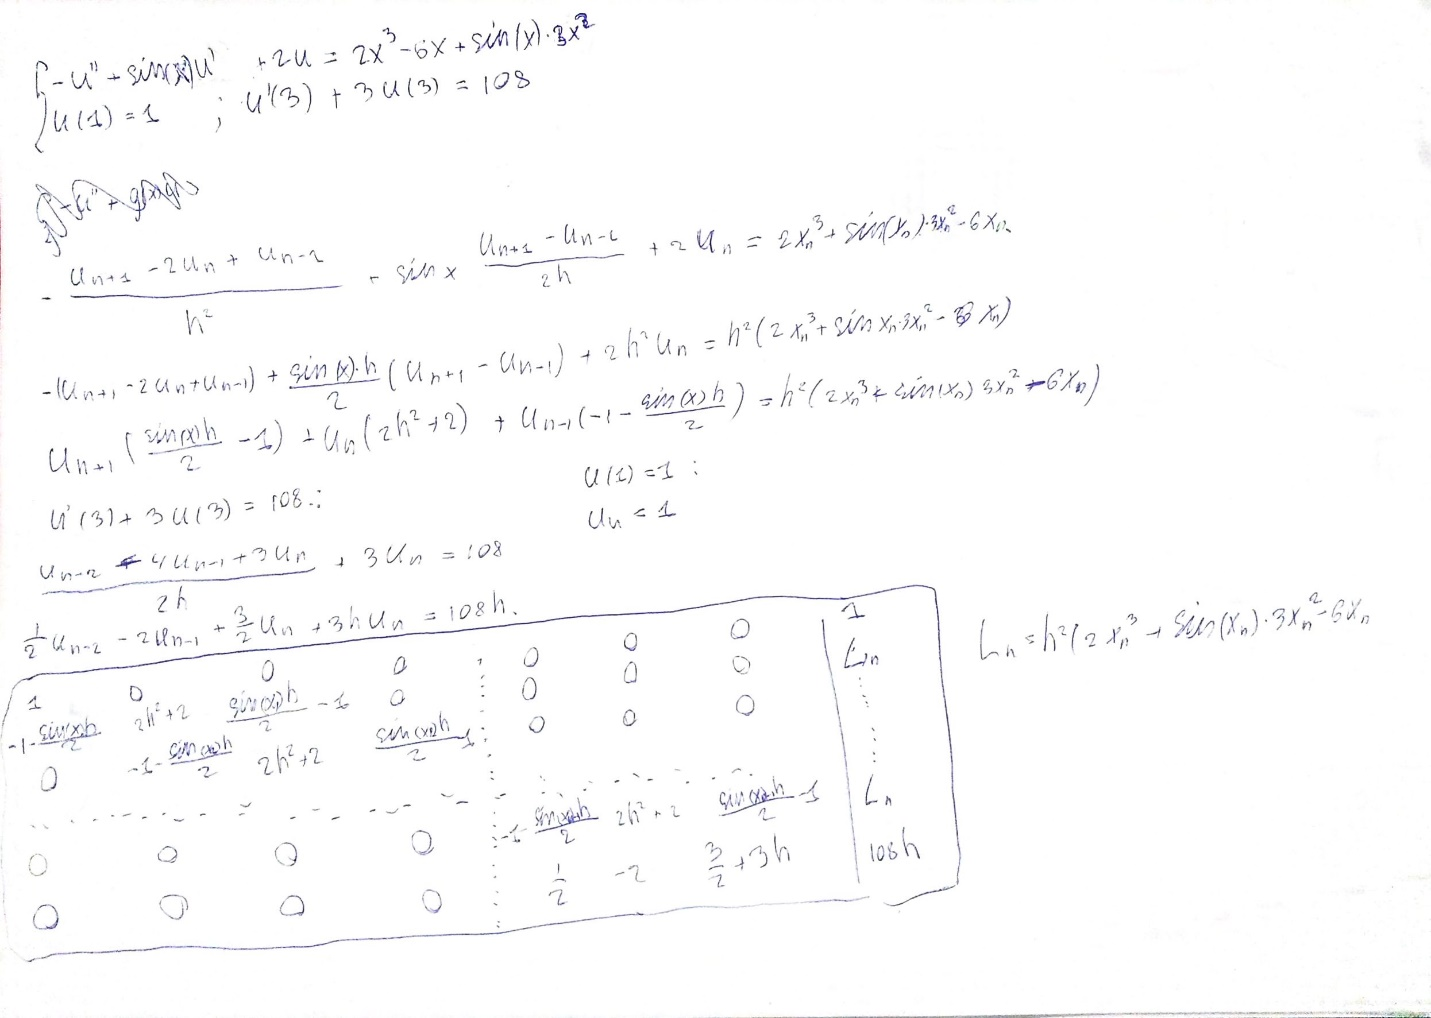 { -u'' + sin(x)u' + 2u = 2x³ - 6x + sin(x)·3x²
u(1) = 1 ; u'(3) + 3u(3) = 108
- (u_{n+1} - 2u_n + u_{n-1})/h² + sin x (u_{n+1} - u_{n-1})/2h + 2u_n = 2x_n³ + sin(x_n)·3x_n² - 6x_n
-(u_{n+1} - 2u_n + u_{n-1}) + sin(x)·h/2 (u_{n+1} - u_{n-1}) + 2h²u_n = h²(2x_n³ + sin x_n·3x_n² - x_n)
u_{n+1}(sin(x)h/2 - 1) + u_n(2h² + 2) + u_{n-1}(-1 - sin(x)h/2) = h²(2x_n³ + sin(x_n) 3x_n² - 6x_n)
u'(3) + 3u(3) = 108 : u(1) = 1 :
u_n = 1
(u_{n-2} - 4u_{n-1} + 3u_n)/2h + 3u_n = 108
1/2 u_{n-2} - 2u_{n-1} + 3/2 u_n + 3h u_n = 108h.
1 0 0 0 ⋮ 0 0 0 | 1
-1 - sin(x)h/2 2h²+2 sin(x)h/2 - 1 0 ⋮ 0 0 0 | L_n
0 -1 - sin(x)h/2 2h²+2 sin(x)h/2 - 1 ⋮ 0 0 0
0 0 0 0 ⋮ -1 - sin(x)h/2 2h²+2 sin(x)h/2 - 1 | L_n
0 0 0 0 ⋮ 1/2 -2 3/2 + 3h | 108h
L_n = h²(2x_n³ + sin(x_n)·3x_n² - 6x_n